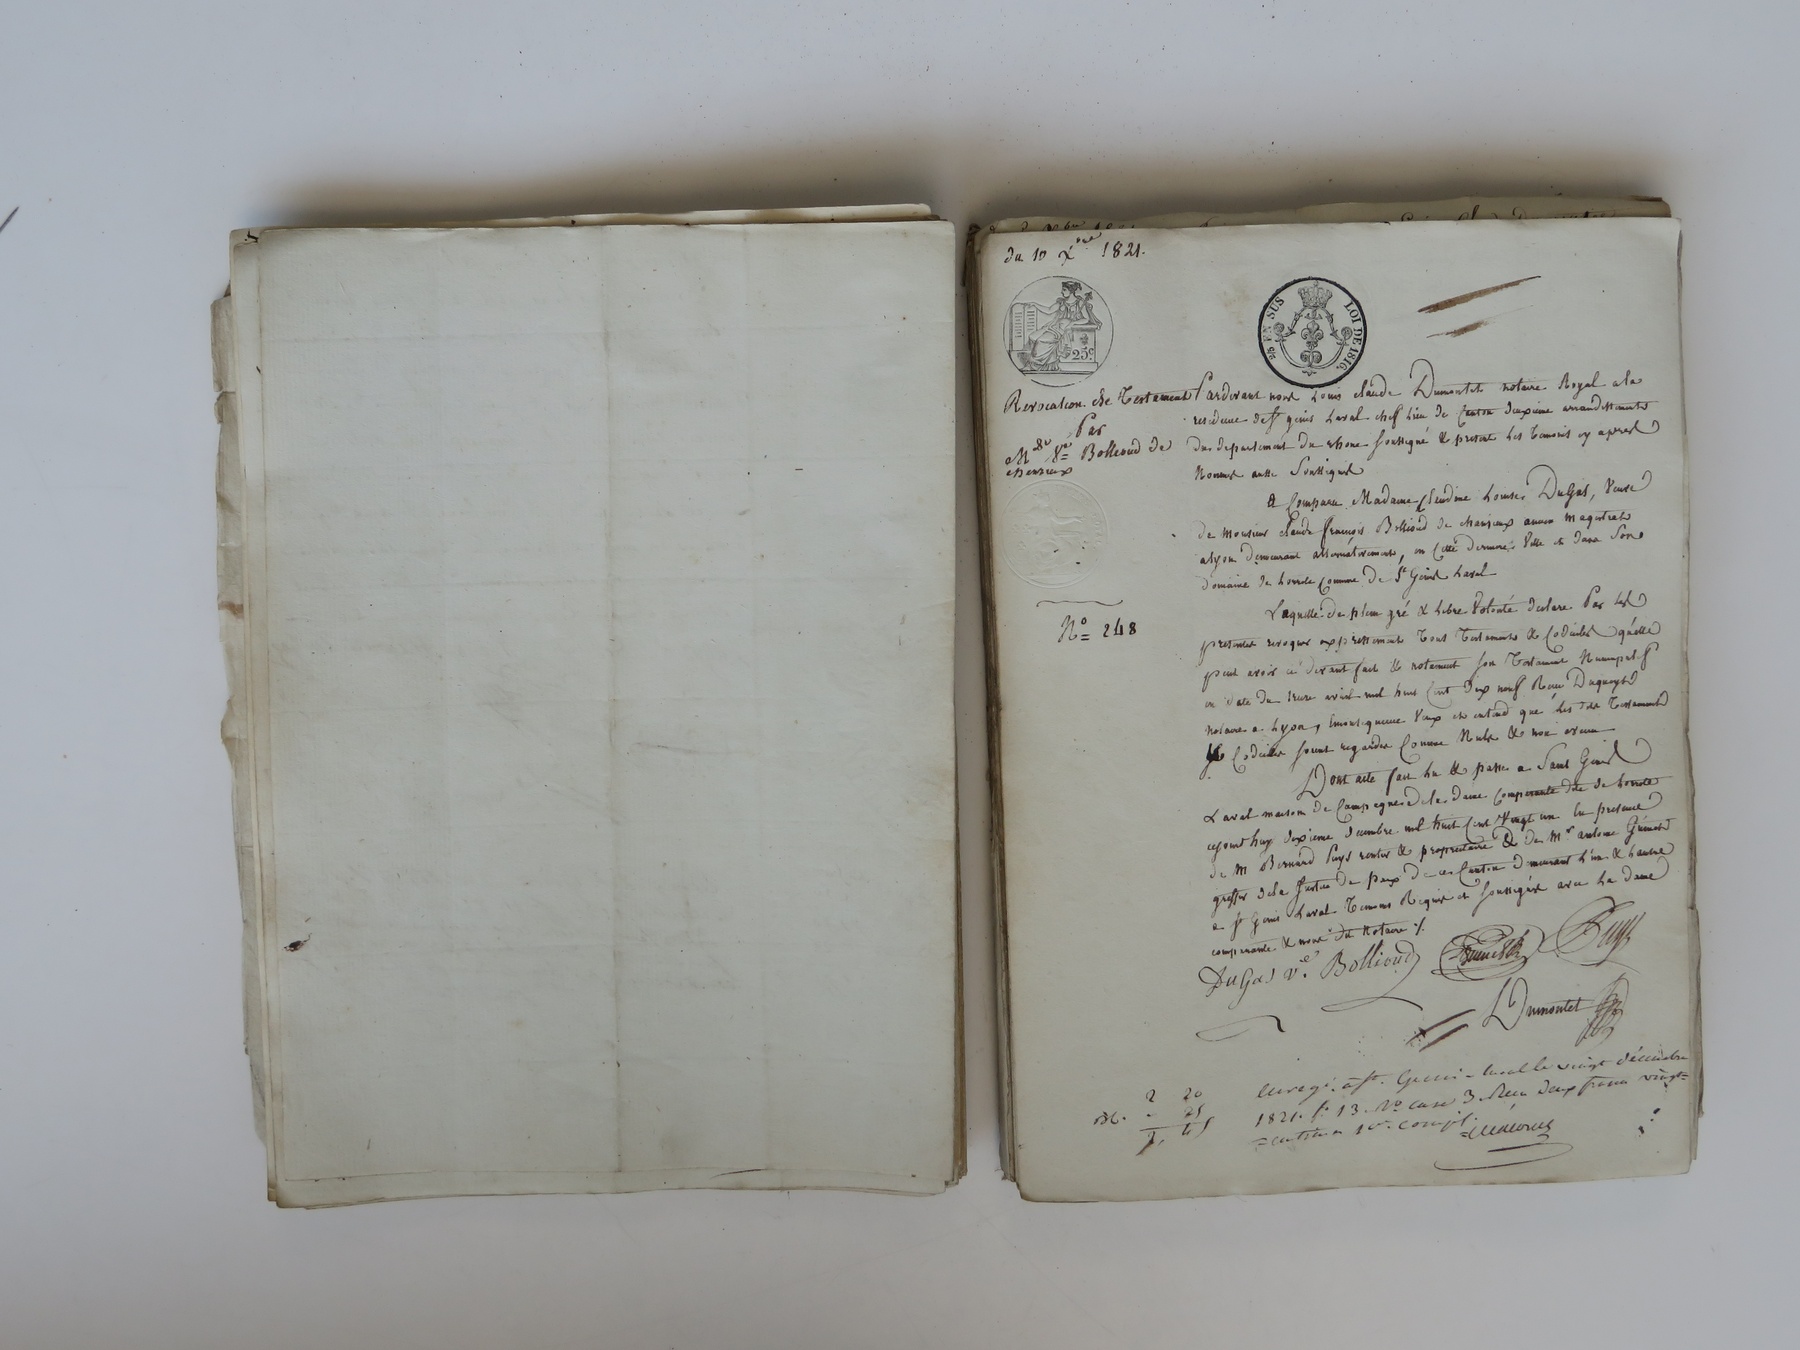 du 10 Xbre 1821.
25c
25 EN SUS LOI DE 1816.
Revocation de Testament
Par
Mde Ve Bollioud de
chanzieux
No 248
Pardevant nous Louis Claude Dumontet notaire Royal a la
residence de St genis Laval chef lieu de Canton deuxieme arrondissement
du departement du rhone soussigné & present les temoins cy apres
Nommés aussi Soussignés
A Comparu Madame Claudine Louise DuGas, Veuve
de Monsieur claude françois Bollioud de chanzieux ancien magistrat
a lyon demeurant alternativement, en Cette derniere Ville et dans Son
Domaine de Lorette Commune de St Genis Laval
Laquelle de plein gré & Libre Volonté declare Par les
presentes revoquer expressement Tous Testaments & Codiciles qu'elle
peut avoir ci devant fait & notament son Testament Nuncupatif
en date du treize avril mil huit Cent dix neuf Reçu Dugueyt
notaire a Lyon, Consequence Veux et entend que les dits Testaments
& Codiciles soient regardés Comme Nuls & non avenu
Dont acte fait lu & passé a Saint Genis
Laval maison de Campagne de la dame comparante dite de Lorette
cejourd'huy dixieme decembre mil huit Cent Vingt un En presence
de M Bernard Puys rentier & proprietaire & de Mr antoine
greffier de la Justice de Paix de ce Canton demeurant l'un & l'autre
a St Genis Laval Temoins Requis et soussignés avec La dame
comparante & nous dit Notaire ./.
DuGas ve Bollioud
Puys
Dumontet
Enregé. a St. Genis-Laval le vingt décembre
1821. fo 13. Vo case 3. Reçu deux francs vingt
centimes 10e. compris
2 20
25
2, 45